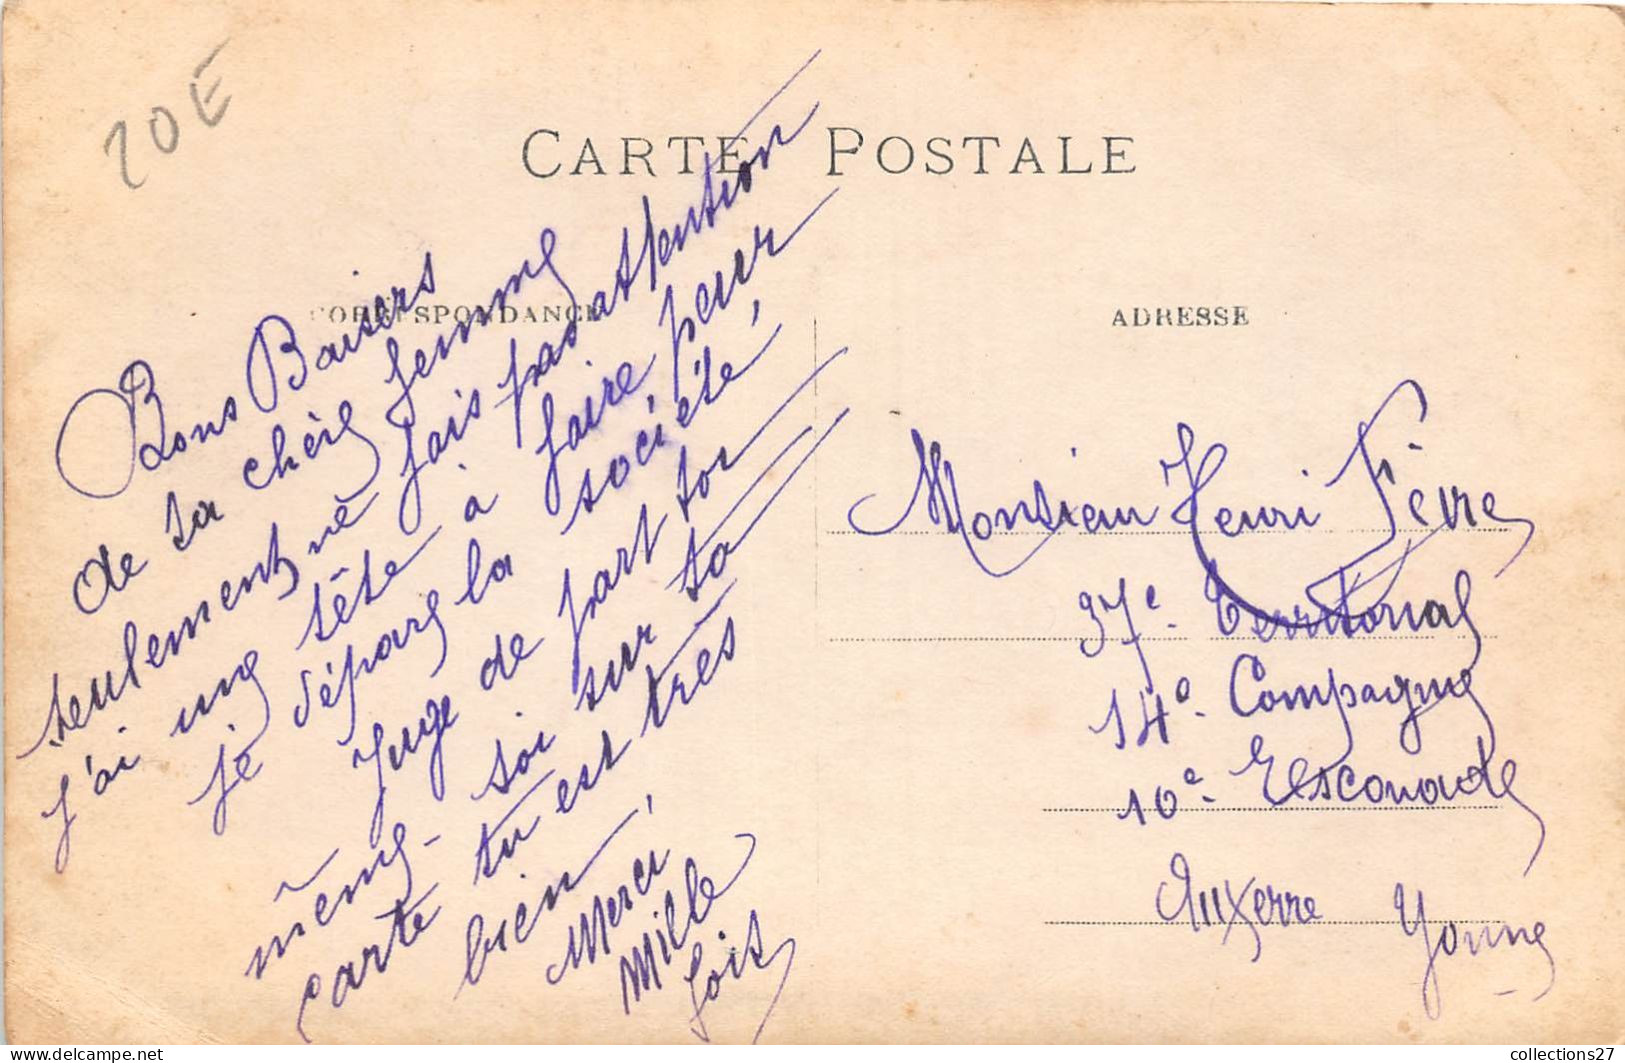 20E
CARTE POSTALE
CORRESPONDANCE
ADRESSE
Bons Baisers
de ta chère femme
seulement ne fais pas attention
j'ai une tête à faire peur
je dépare la société,
Juge de part toi
même - soi sur ta
carte tu est tres
bien,
Merci
Mille
fois
Monsieur Henri Fèvre
37e. Territorial
14e. Compagnie
10e. Escouade
Auxerre Yonne
collections27